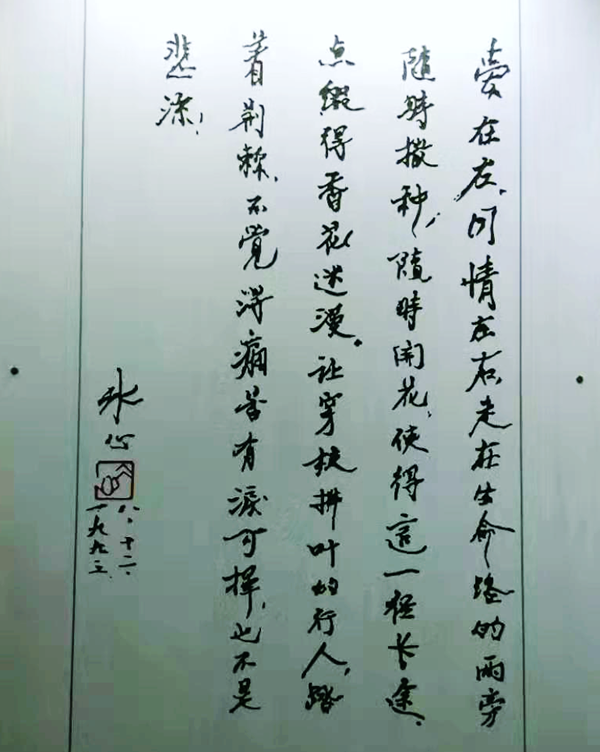 愛在左,同情在右,走在生命路的兩旁
隨時撒種,隨時開花,使得這一徑长途.
点綴得香花迷漫。让穿枝拂叶的行人,踏
着荆棘,不覺得痛苦有淚可揮,也不是
悲凉!
冰心
八、十二、
一九九三.